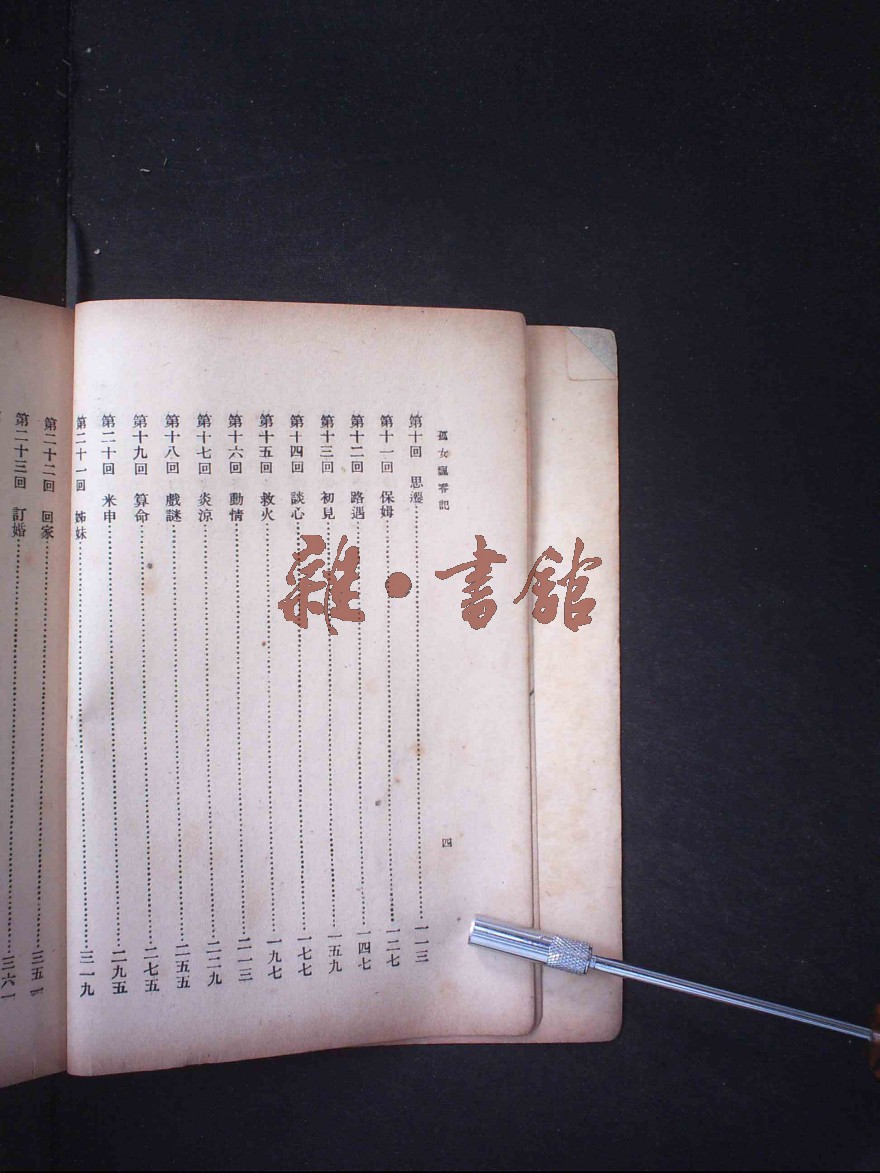 孤女飄零記
四
第十回 思遷 一一三
第十一回 保姆 一二七
第十二回 路遇 一四七
第十三回 初見 一五九
第十四回 談心 一七七
第十五回 救火 一九七
第十六回 動情 二一三
第十七回 炎涼 二二九
第十八回 戲謎 二五五
第十九回 算命 二七五
第二十回 米申 二九五
第二十一回 姊妹 三一九
第二十二回 回家 三五一
第二十三回 訂婚 三六一
雜·書館